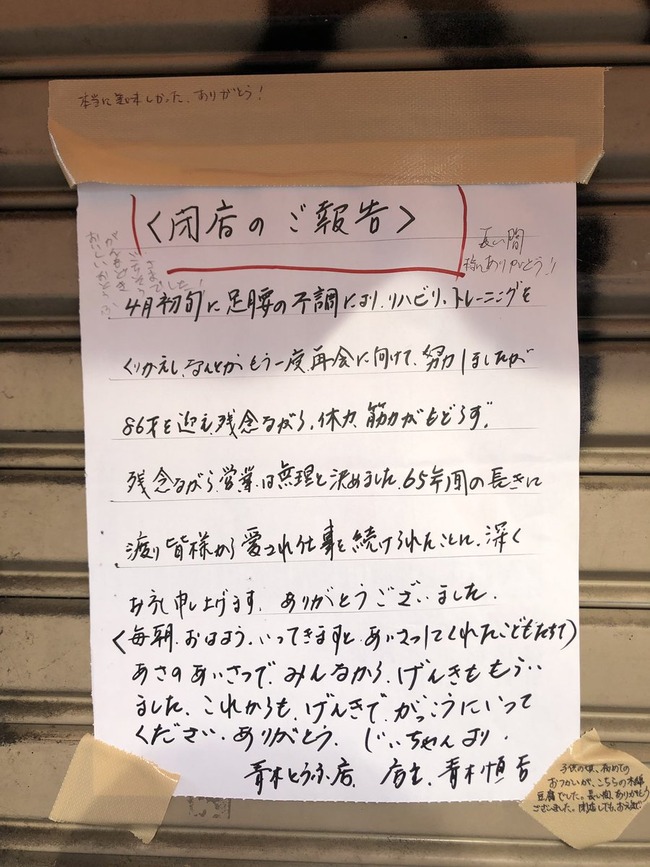 本当に美味しかった、ありがとう！
〈閉店のご報告〉
長い間
ありがとう!!
4月初旬に足腰の不調により、リハビリ、トレーニングを
くりかえし、なんとか、もう一度、再会に向けて、努力しましたが
86才を迎え、残念ながら、体力、筋力がもどらず、
残念ながら、営業は無理と決めました。65年間の長きに
渡り皆様から愛され仕事を続けられたことに、深く
お礼申し上げます。ありがとうございました。
(毎朝、おはよう、いってきますと、あいさつしてくれたこどもたちて)
あさのあいさつで、みんなから、げんきをもらい
ました。これからも、げんきで、がっこうにいって
ください、ありがとう、じいちゃんより、
青木とうふ店、店主、青木慎吾
子供の頃、初めての
おつかいが、こちらの木綿
豆腐でした。長い間、ありがとう
ございました。閉店しても、お元気で